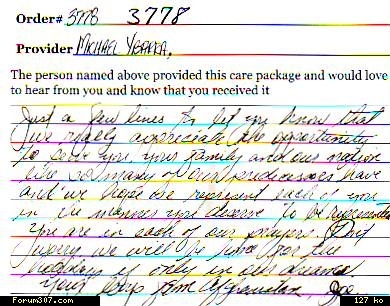 Order# 3778 3778
Provider MICHAEL YBARRA.
The person named above provided this care package and would love
to hear from you and know that you received it
Just a few lines to let you know that
we really appreciate the opportunity
to serve you, your family and our nation
like so many of our predecessors have
and we hope we represent each of you
in the manner you deserve to be represented
You are in each of our prayers. Don't
worry we will be home for the
holidays if only in our dreams.
Your boys from Afganistan
Forum307.com
127 ko